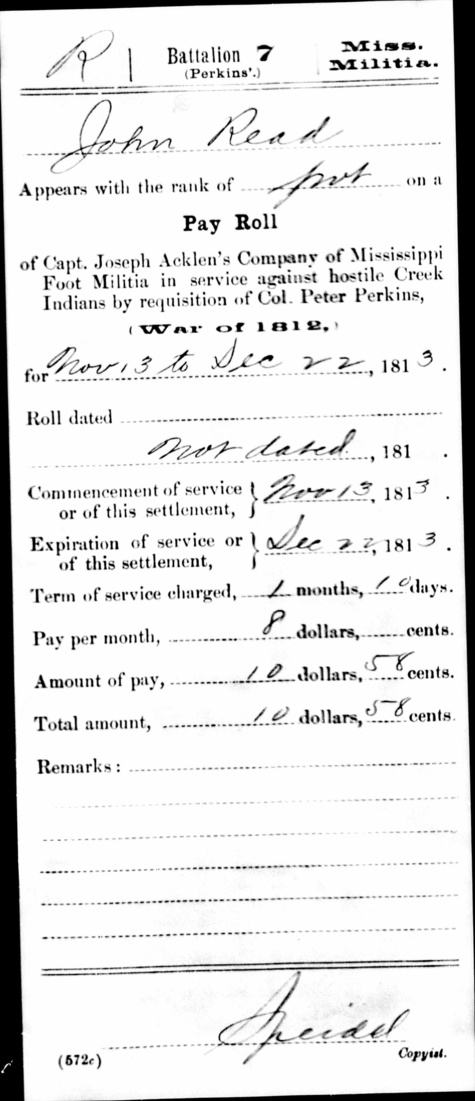 R | Battalion 7 Miss.
(Perkins'.) Militia.
John Read
Appears with the rank of pvt on a
Pay Roll
of Capt. Joseph Acklen's Company of Mississippi
Foot Militia in service against hostile Creek
Indians by requisition of Col. Peter Perkins,
(War of 1812,)
for Nov 13 to Dec 22, 1813.
Roll dated
Not dated, 181 .
Commencement of service } Nov 13, 1813.
or of this settlement,
Expiration of service or } Dec 22, 1813.
of this settlement,
Term of service charged, 1 months, 10 days.
Pay per month, 8 dollars, cents.
Amount of pay, 10 dollars, 58 cents.
Total amount, 10 dollars, 58 cents.
Remarks:
Speidel
(572c) Copyist.